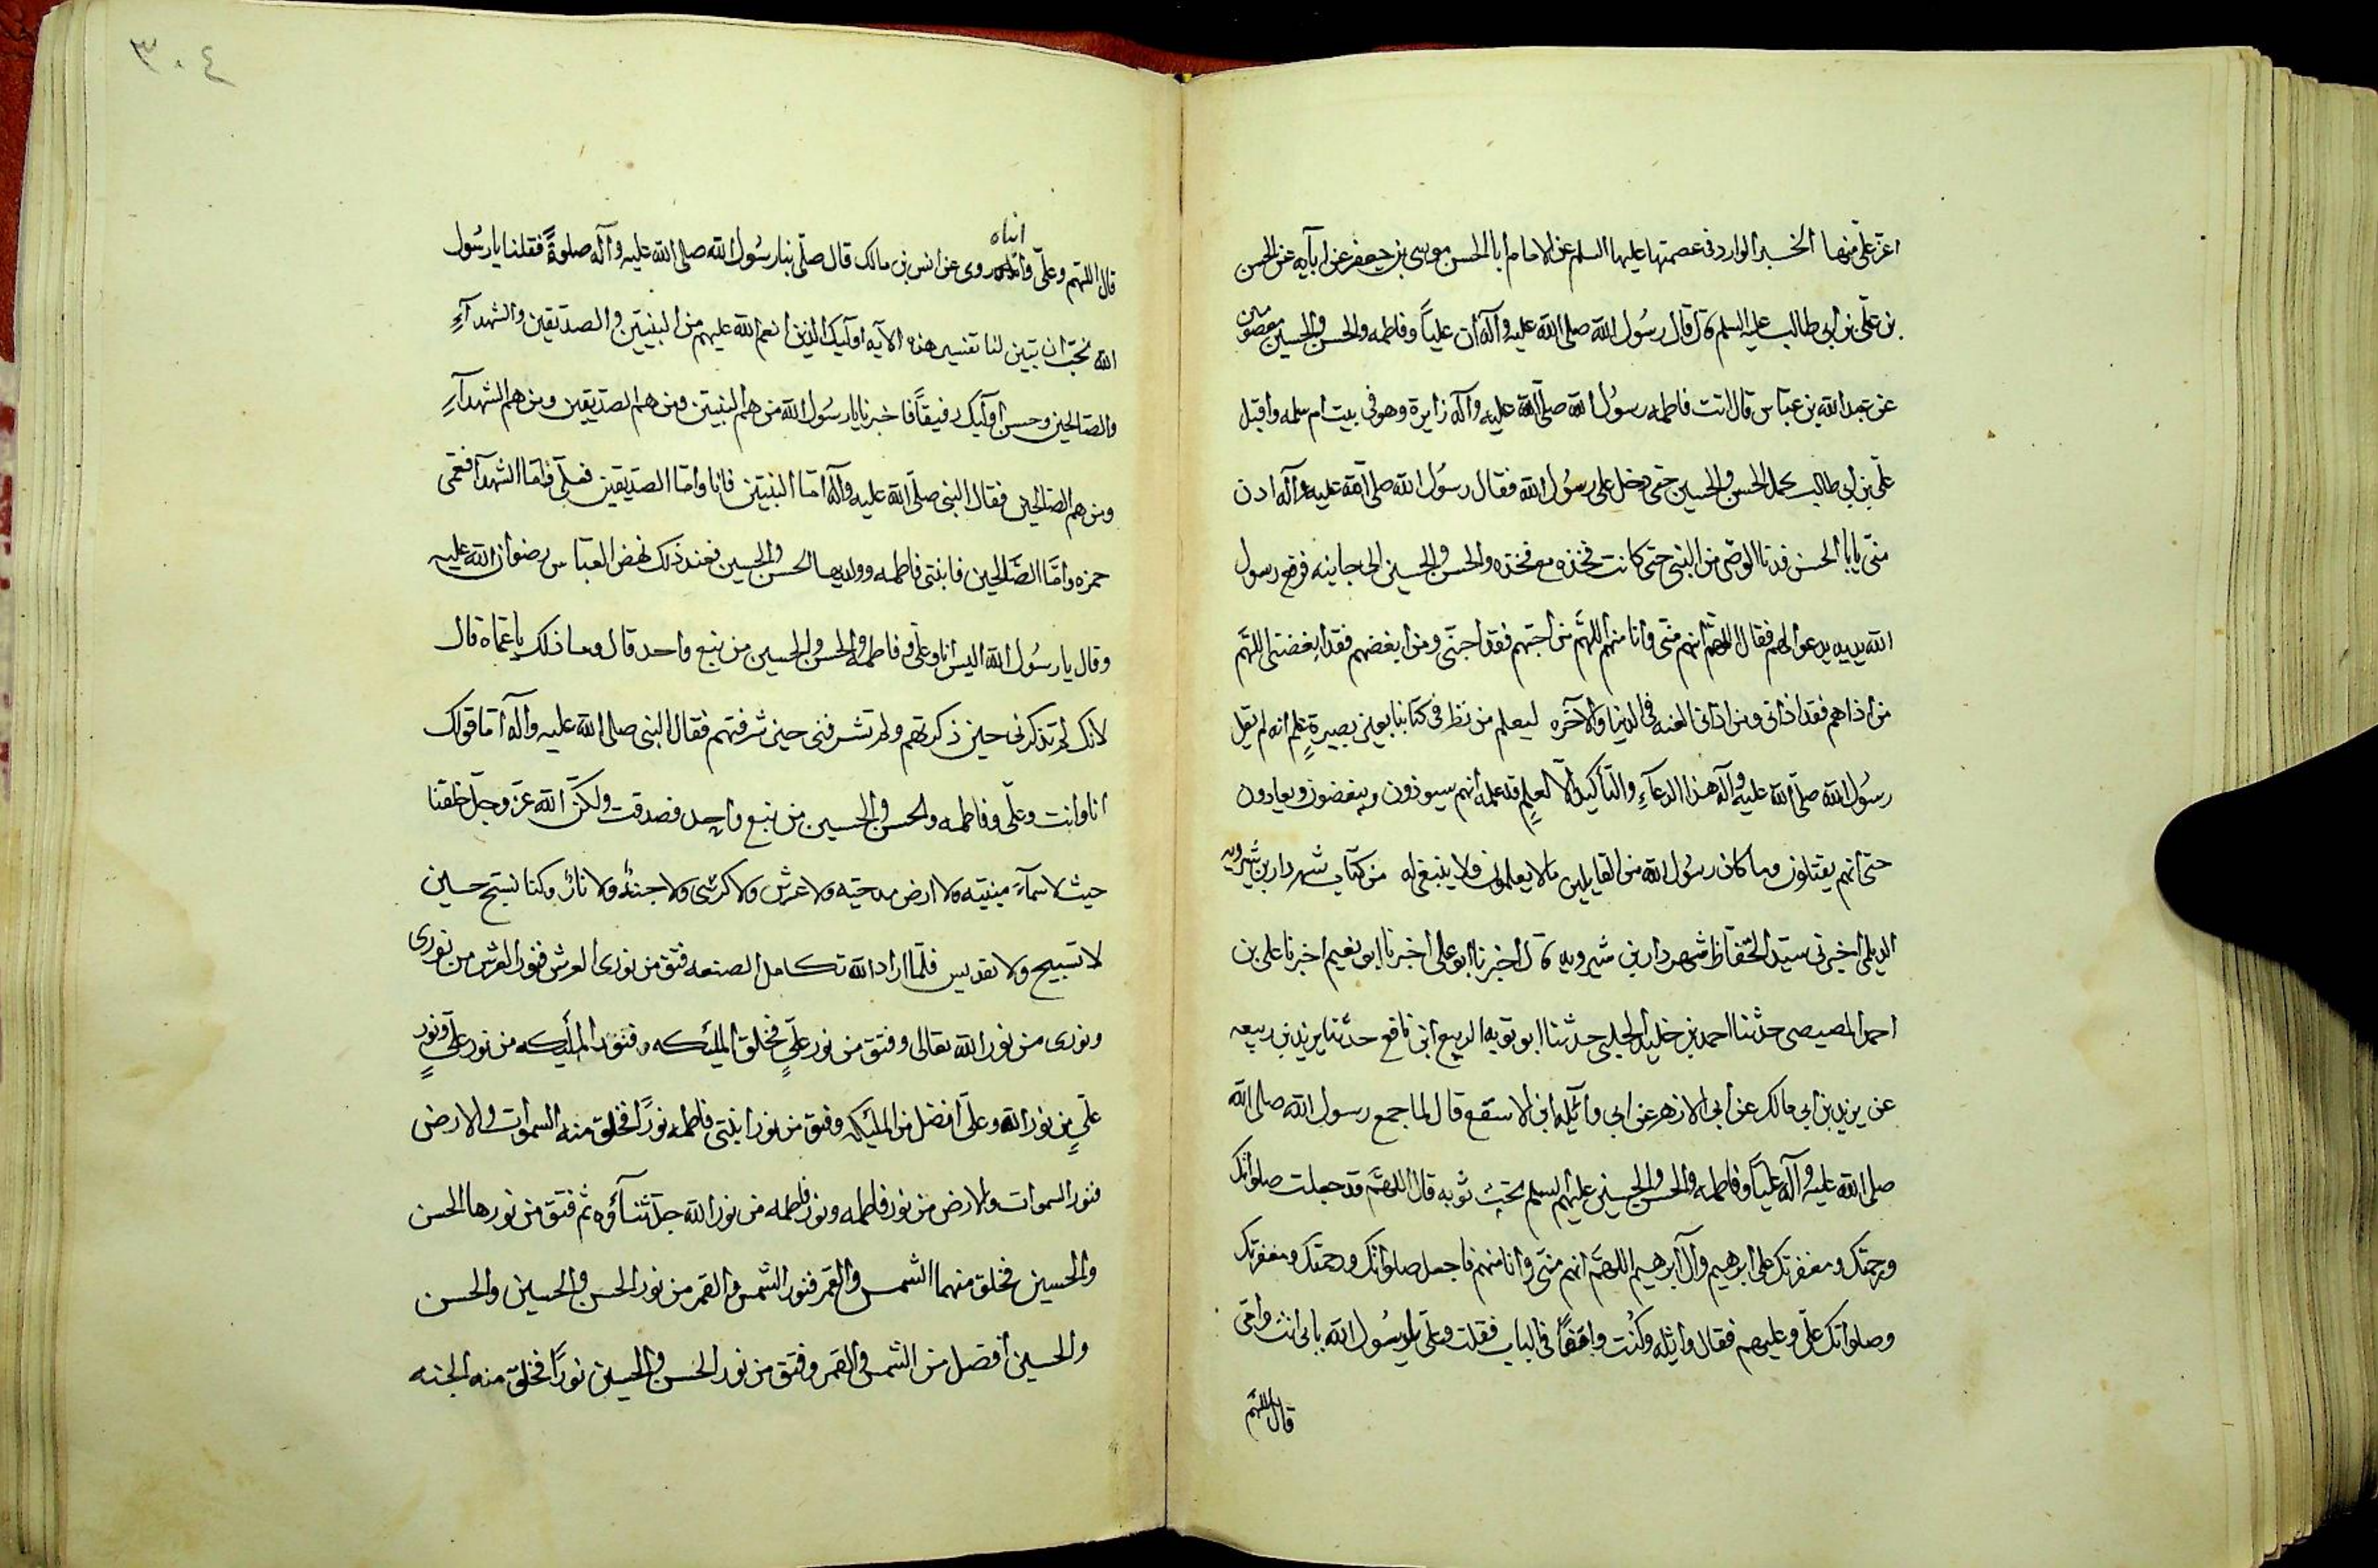 اعز على منها الخبر الوارد فى عصمتها عليها السلم عن الامام ابا الحسن موسى بن جعفر عن ابآيه عن الحسن
بن على بن ابى طالب عليه السلم قال قال رسول الله صلى الله عليه وآله ان علياً وفاطمه والحسن والحسين معصومين
عن عبد الله بن عباس قال اتت فاطمه رسول الله صلى الله عليه وآله زايرة وهو فى بيت ام سلمه واقبل
على بن ابى طالب يحمل الحسن والحسين حتى دخل على رسول الله فقال رسول الله صلى الله عليه وآله ادن
منى يابا الحسن فدنا الوصى من النبى حتى كانت فخذه مع فخذه والحسن والحسين الى جانبه فرفع رسول
الله يديه يدعوا لهم فقال اللهم انهم منى وانا منهم اللهم من احبهم فقد احبنى ومن ابغضهم فقد ابغضنى اللهم
من اذاهم فقد اذانى ومن اذانى العنه فى الدنيا والآخره ليعلم من نظر فى كتابنا بعين بصيرةٍ علم انه لم يقل
رسول الله صلى الله عليه وآله هذا الدعآءِ والتأكيد الّا لعلمٍ قد علمه انهم سيوذون ويبغضون ويعادون
حتى انهم يقتلون وما كان رسول الله من القايلين ما لا يعلمون ولا ينبغى له من كتاب شهردار بن شيرويه
الديلمى اخبرنى سيد الحفاظ شهردار بن شيرويه قال اخبرنا ابو على اخبرنا ابو نعيم اخبرنا على بن
احمد المصيصى حدثنا احمد بن خليد الحلبى حدثنا ابو توبه الربيع ابن نافع حدثنا يزيد بن ربيعه
عن يزيد بن ابى مالك عن ابى الازهر عن ابى وآثلة ابن الاسقع قال لما جمع رسول الله صلى الله
صلى الله عليه وآله علياً وفاطمه والحسن والحسين عليهم السلم تحت ثوبه قال اللهم قد جعلت صلواتك
ورحمتك ومغفرتك على ابرهيم وآل ابرهيم اللهم انهم منى وانا منهم فاجعل صلواتك ورحمتك ومغفرتك
وصلواتك علىّ وعليهم فقال واثله وكنت واقفاً فى الباب فقلت وعلىّ يا رسول الله بابى انت وامى
قال اللهم
٣٠٤
قال اللهم وعلى واثله روى عن انس بن مالك قال صلى بنا رسول الله صلى الله عليه وآله صلوةً فقلنا يا رسول
الله نحب ان تبين لنا تفسير هذه الآيه اوليك الذين انعم الله عليهم من النبيين والصديقين والشهدآءِ
والصالحين وحسن اوليك رفيقاً فاخبرنا يا رسول الله من هم النبيين ومن هم الصديقين ومن هم الشهدآءِ
ومن هم الصالحين فقال النبى صلى الله عليه وآله اما النبيين فانا واما الصديقين فعلى واما الشهدآ فعمى
حمزه واما الصالحين فابنتى فاطمه وولديها الحسن والحسين فعند ذلك نهض العباس رضوان الله عليه
وقال يا رسول الله اليس انا وعلى وفاطمه والحسن والحسين من نبع واحد قال وما ذلك يا عماه قال
لانك لم تذكرنى حين ذكرتهم ولم تشرفنى حين شرفتهم فقال النبى صلى الله عليه وآله اما قولك
انا وانت وعلى وفاطمه والحسن والحسين من نبع واحد فصدقت ولكن الله عز وجل خلقنا
حيث لا سمآءِ مبنيه ولا ارض مدحيه ولا عرش ولا كرسى ولا جنةٌ ولا نارٌ وكنا نسبح حين
لا تسبيح ولا تقديس فلما اراد الله تكامل الصنعه فتق من نورى العرش فنور العرش من نورى
ونورى من نور الله تعالى وفتق من نور علىٍّ فخلق المليكه فنور المليكه من نور علىٍّ ونور
علىٍّ من نور الله وعلى افضل من المليكه وفتق من نور ابنتى فاطمه نوراً فخلق منه السموات والارض
فنور السموات والارض من نور فاطمه ونور فاطمه من نور الله جل ثنآؤه ثم فتق من نورها الحسن
والحسين فخلق منهما الشمس والقمر فنور الشمس والقمر من نور الحسن والحسين والحسن
والحسين افضل من الشمس والقمر وفتق من نور الحسن والحسين نوراً فخلق منه الجنه